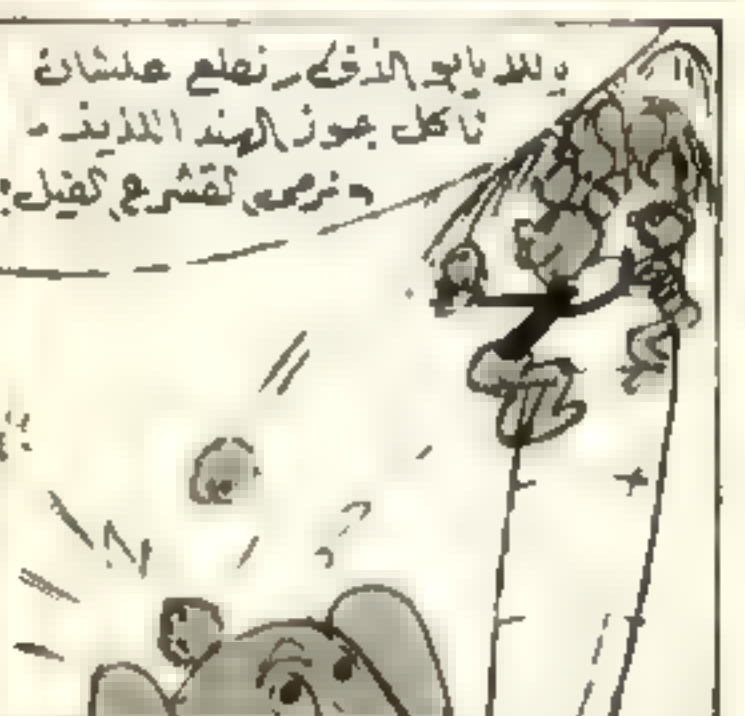 يالله يابو الذوق .. نطلع علشان
ناكل جوز الهند اللذيذ ..
ونرمى القشر ع الفيل